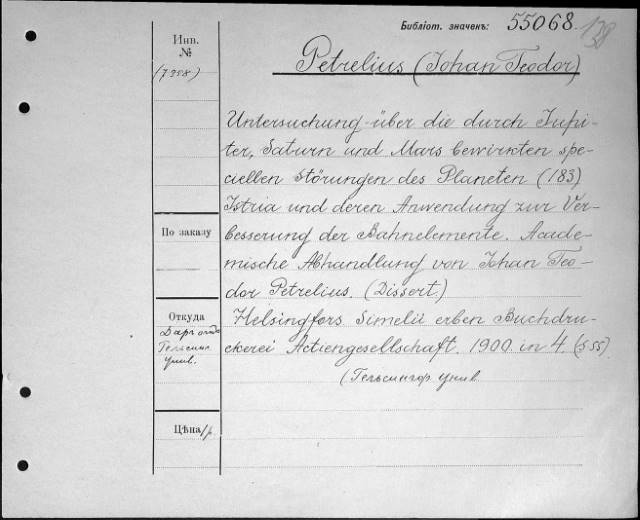 Библіот. значекъ: 55068. 138
Инв.
№
(7358)
Petrelius (Johan Teodor)
Untersuchung über die durch Jupi-
ter, Saturn und Mars bewirkten spe-
ciellen Störungen des Planeten (183)
Istria und deren Anwendung zur Ver-
besserung der Bahnelemente. Acade-
mische Abhandlung von Johan Teo-
dor Petrelius. (Dissert.)
Helsingfors Simelii erben Buchdru-
ckerei Actiengesellschaft. 1900. in 4. (S 55)
(Гельсингфор унив
По заказу
Откуда
Даръ отъ
Гельсинг
унив.
Цѣна